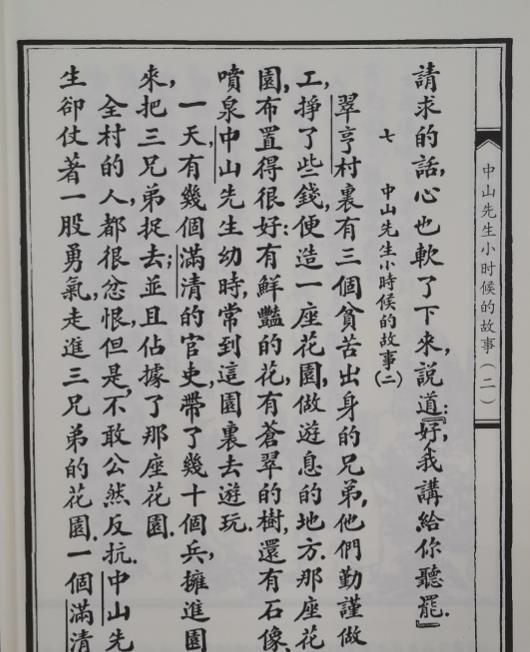 中山先生小时候的故事（二）
請求的話，心也軟了下來，說道：『好，我講給你聽罷．』
七　中山先生小時候的故事（二）
翠亨村裏有三個貧苦出身的兄弟，他們勤謹做
工，掙了些錢，便造一座花園，做遊息的地方．那座花
園，布置得很好：有鮮豔的花，有蒼翠的樹，還有石像、
噴泉．中山先生幼時，常到這園裏去遊玩．
一天，有幾個滿清的官吏，帶了幾十個兵，擁進園
來，把三兄弟捉去；並且佔據了那座花園．
全村的人，都很忿恨，但是，不敢公然反抗．中山先
生卻仗著一股勇氣，走進三兄弟的花園．一個滿清